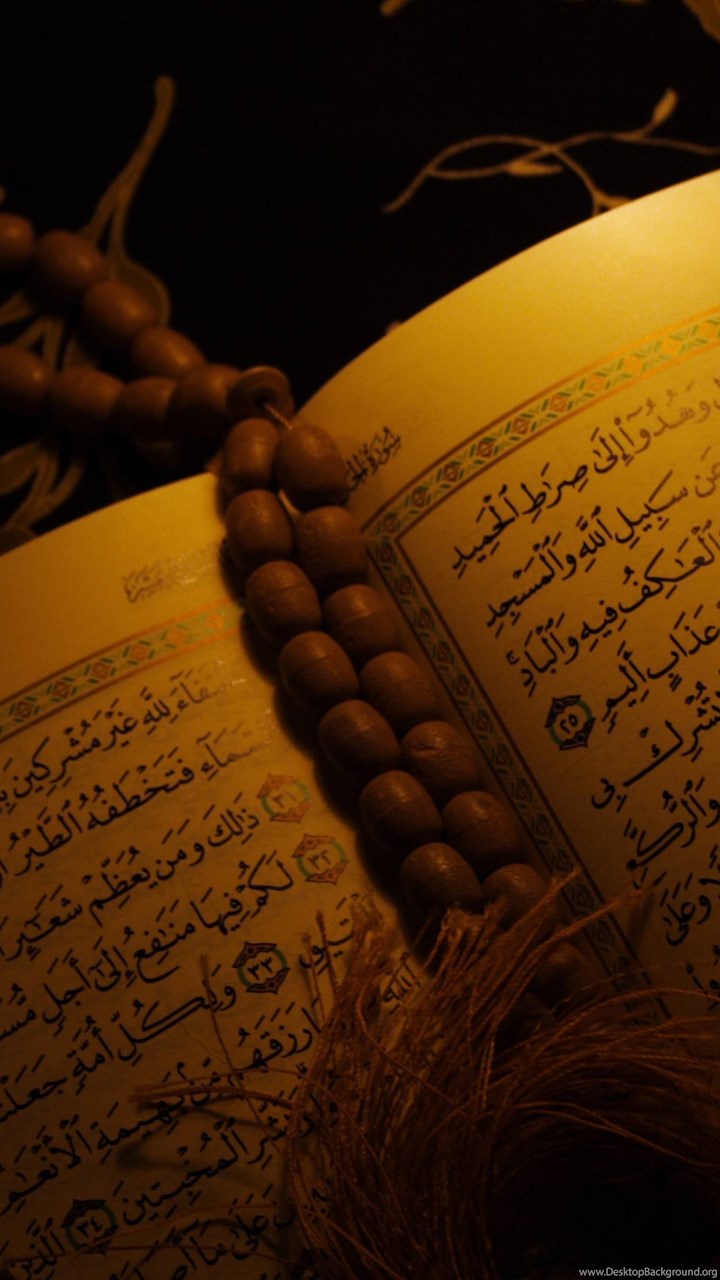 سُورَةُ الحَجِّ
وَهُدُوٓا۟ إِلَىٰ صِرَٰطِ ٱلْحَمِيدِ
عَن سَبِيلِ ٱللَّهِ وَٱلْمَسْجِدِ
ٱلْعَـٰكِفُ فِيهِ وَٱلْبَادِ ۚ
عَذَابٍ أَلِيمٍ ٢٥
تُشْرِكْ بِى
وَٱلرُّكَّعِ
وَعَلَىٰ
حُنَفَآءَ لِلَّهِ غَيْرَ مُشْرِكِينَ
ٱلسَّمَآءِ فَتَخْطَفُهُ ٱلطَّيْرُ
٣١ ذَٰلِكَ وَمَن يُعَظِّمْ شَعَـٰٓئِرَ
٣٢ لَكُمْ فِيهَا مَنَـٰفِعُ إِلَىٰٓ أَجَلٍ
٣٣ وَلِكُلِّ أُمَّةٍ جَعَلْنَا
ٱللَّهِ
رَزَقَهُم مِّنۢ بَهِيمَةِ ٱلْأَنْعَـٰمِ
وَبَشِّرِ ٱلْمُخْبِتِينَ ٣٤ ٱلَّذِينَ
عَلَىٰ مَآ
www.DesktopBackground.org